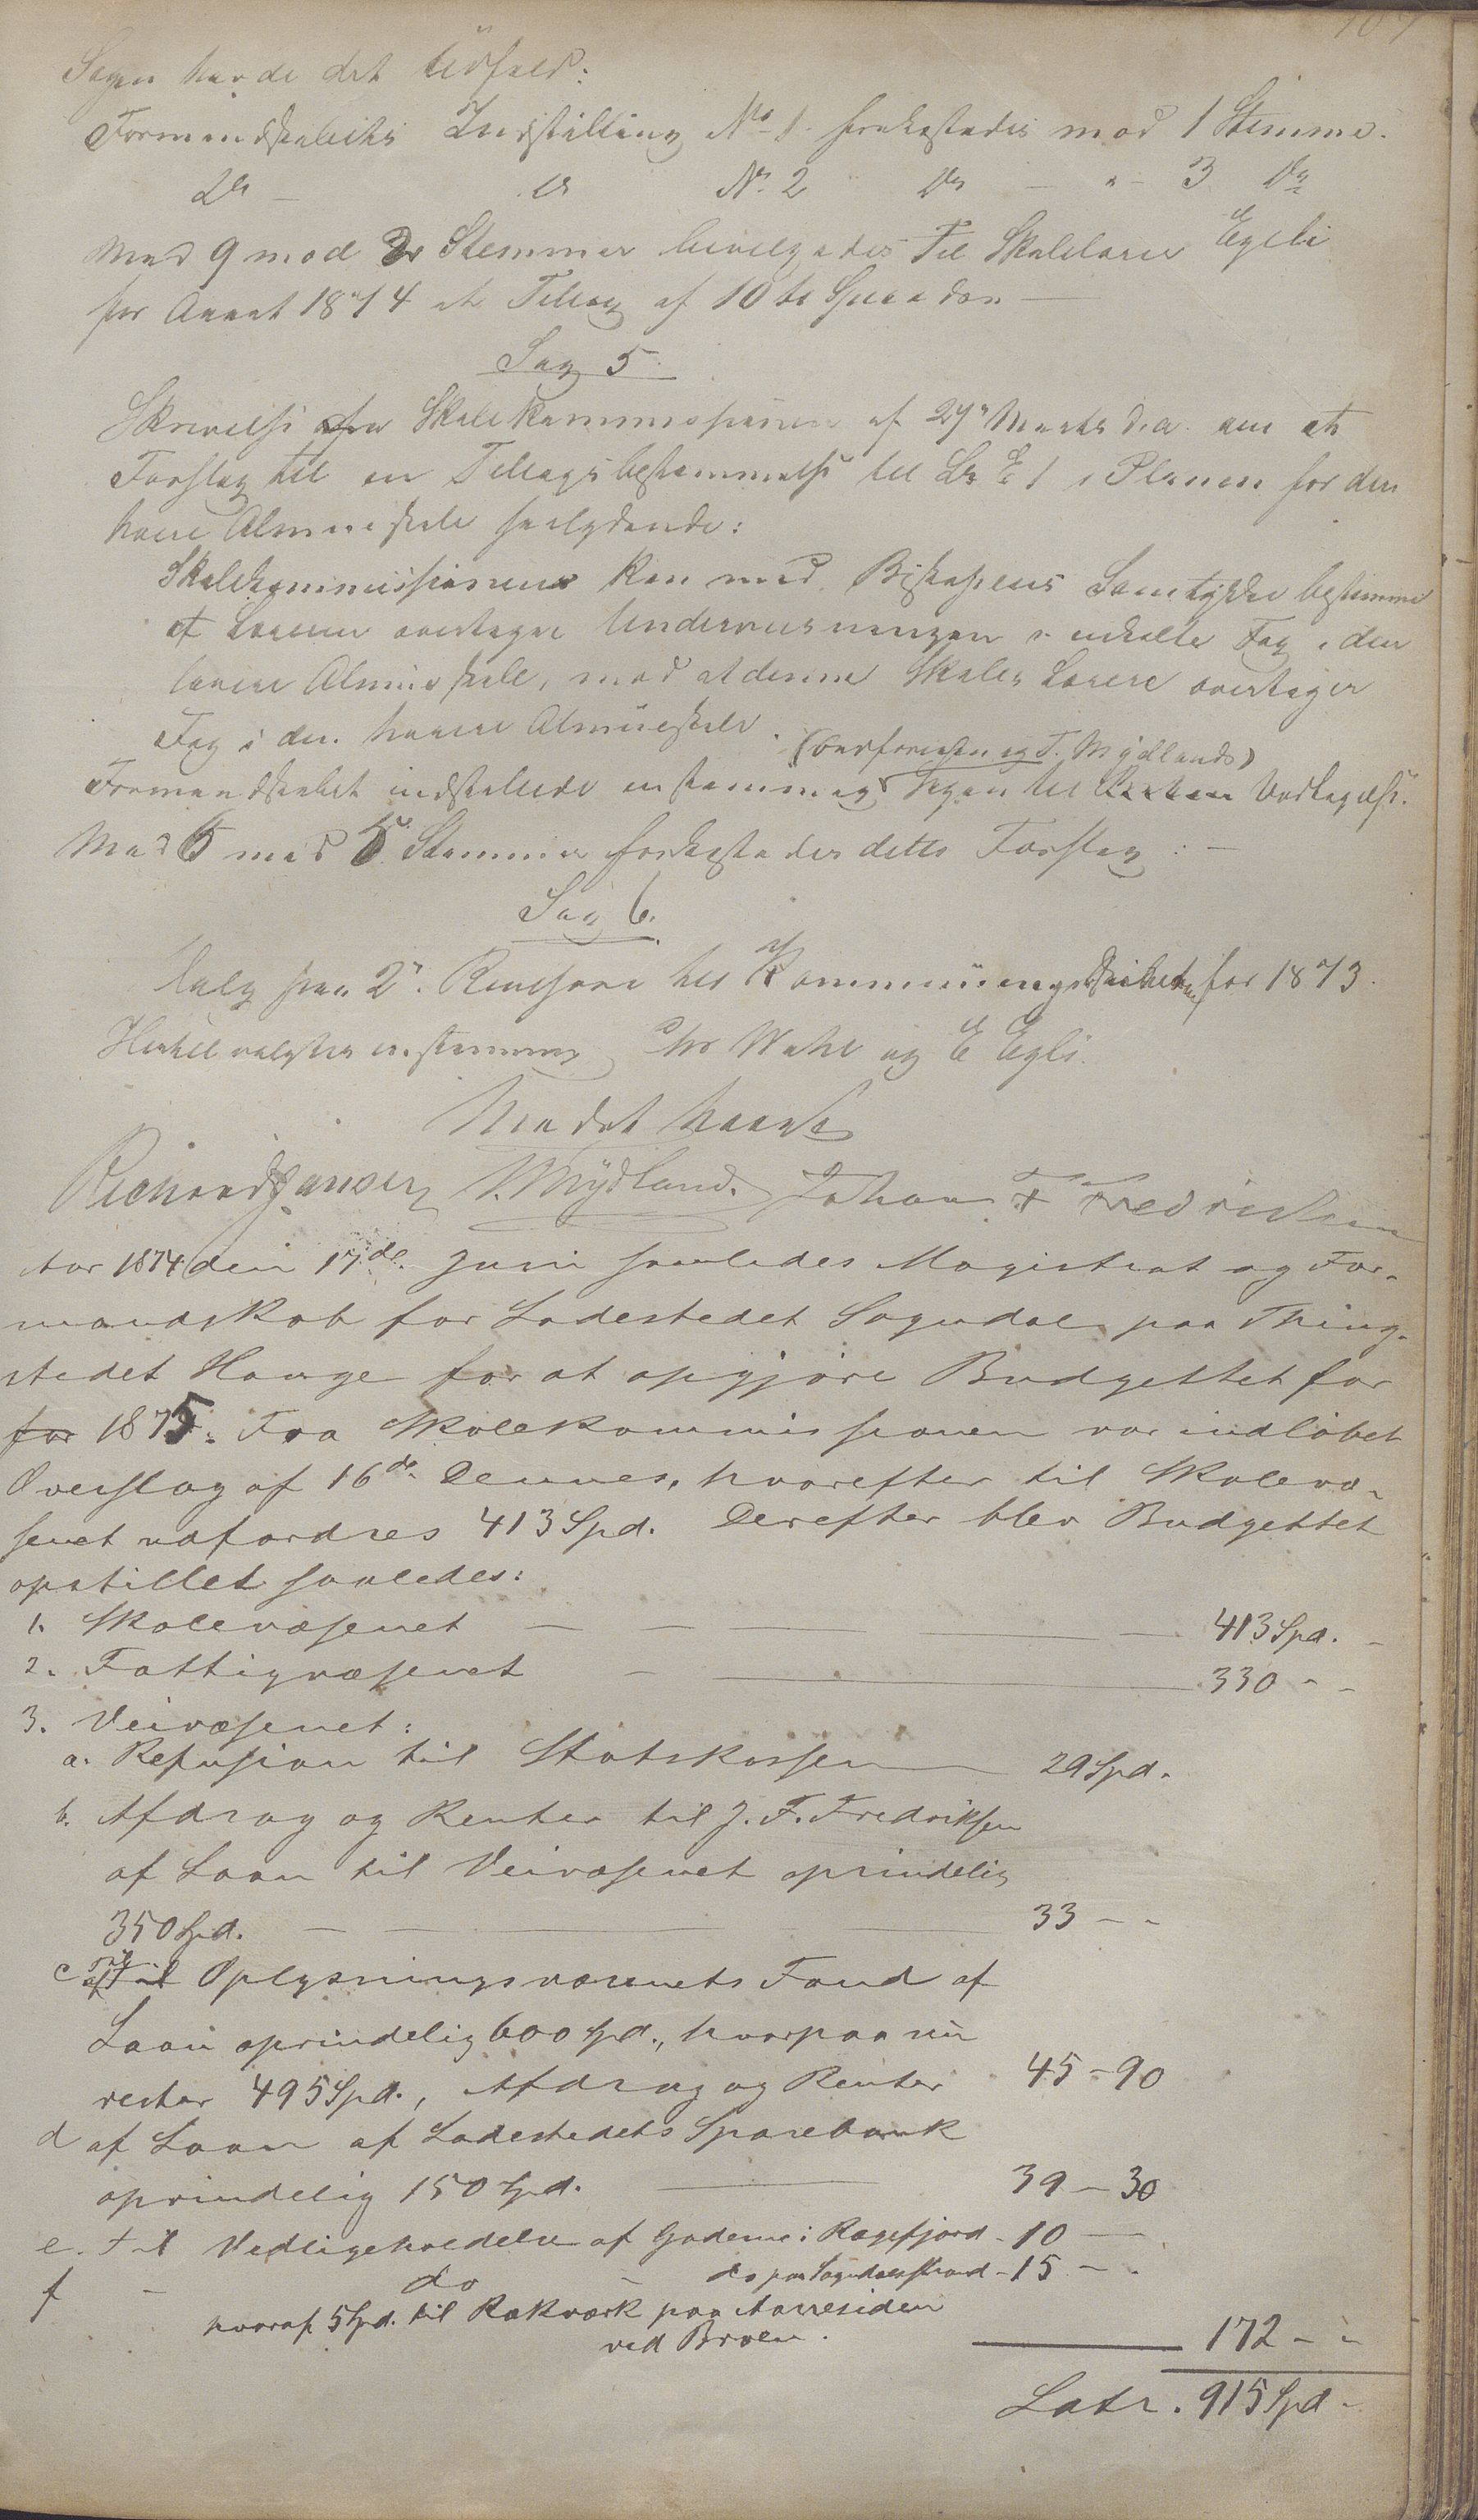 107
Sagen havde det Udfald:
Formandskabets Indstilling No 1. forkastedes mod 1 Stemme.
Do - do No. 2 Do - " - 3 Do
Med 9 mod 3 Stemmer bevilgedes Til Skolelærer Egeli
for Aaret 1874 et Tillæg af 10 ti Speciedaler
Sag 5
Skrivelse fra Skolekommissionen af 27" Marts d.a. om et
Forslag til en Tillægsbestemmelse til Lr E 1 i Planen for den
høiere Almueskole saalydende:
Skolekommissionen kan med Biskopens Samtykke bestemme
at Læreren overtager Undervisningen i enkelte Fag i den
lavere Almueskole, mod at denne Skoles Lærere overtager
Fag i den høiere Almueskole.
T. Mydlands)
Formandskabet indstillede enstemmig Vedtagelse.
Med 6 mod 5 Stemmer forkastedes dette Forslag : -
Sag 6.
Valg paa 2" Revisorer til af Kommuneregnskaberne for 1873.
Hertil valgtes enstemmig Chr Wahl og E Egeli.
Mødet hævet
Richard Jansen T. Mydland. Johan F Fredriksen
Aar 1874 den 17de Juni samledes Magistrat og For-
mandskab for Ladestedet Sogndal paa Thing-
stedet Hauge for at opgjøre Budgettet for
for 1875. Fra Skolekommissionen var indløbet
Overslag af 16de Dennes, hvorefter til Skolevæ-
senet udfordres 413 Spd. Derefter blev Budgettet
opstillet saaledes:
1. Skolevæsenet - - - - 413 Spd. -
2. Fattigvæsenet - - 330 - -
3. Veivæsenet:
a. Refusion til Statskassen - 29 Spd.
b. Afdrag og Renter til J. F. Fredriksen
af Laan til Veivæsenet oprindelig
350 Spd. - - 33 - -
c Til Oplysningsvæsenets Fond af
Laan oprindelig 600 Spd., hvorpaa nu
rester 495 Spd., Afdrag og Renter 45 - 90
d af Laan af Ladestedets Sparebank
oprindelig 150 Spd. - 39 - 30
e. til Vedligeholdelse af Gaderne i Rægefjord - 10 -
f - do - do paa Sogndalsstrand - 15 - -
hvoraf 5 Spd. til Rækværk paa Aaresiden
ved Broen.
172 - -
Latr. 915 Spd -